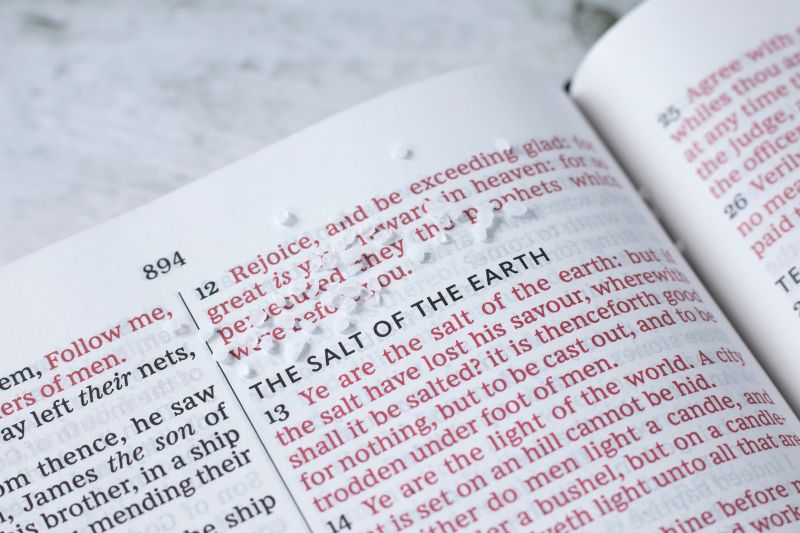 894
Follow me,
ers of men.
ay left their nets,
om thence, he saw
James the son of
his brother, in a ship
mending their
the ship
12 Rejoice, and be exceeding glad: for
great is reward in heaven: for so
persecuted they the prophets which
were you.
THE SALT OF THE EARTH
13 Ye are the salt of the earth: but if
the salt have lost his savour, wherewith
shall it be salted? it is thenceforth good
for nothing, but to be cast out, and to be
trodden under foot of men.
14 Ye are the light of the world. A city
t is set on an hill cannot be hid.
ther do men light a candle, and
er a bushel, but on a candle-
veth light unto all that are
hine before
25 Agree with
whiles thou
at any time
the judge,
the officer
26 Verily
no
paid